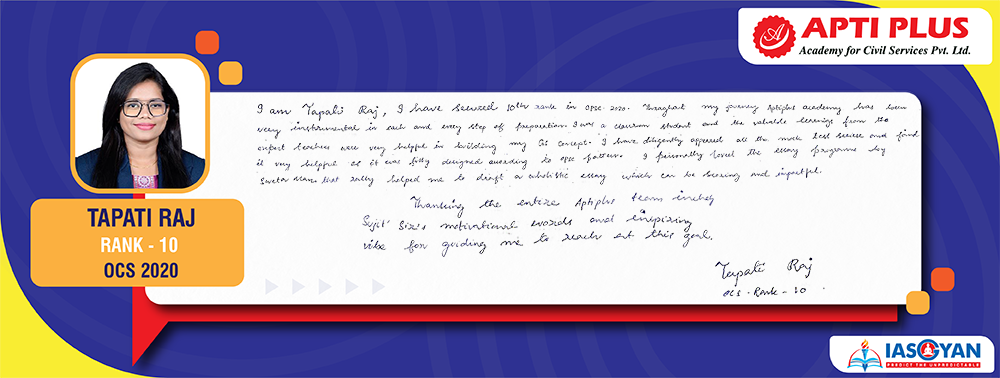 APTI PLUS
Academy for Civil Services Pvt. Ltd.
I am Tapati Raj, I have secured 10th rank in OPSC-2020. Throughout my journey Aptiplus academy has been
very instrumental in each and every step of preparation. I was a classroom student and the valuable learnings from the
expert teachers were very helpful in building my GS concept. I have diligently appeared all the mock test series and found
it very helpful as it was fully designed according to opsc pattern. I personally loved the essay programme by
Sweta Mam that really helped me to draft a wholistic essay which can be scoring and impactful.
Thanking the entire Aptiplus team
Sujit Sir's motivational words and inspiring
vibe for guiding me to reach at this goal.
Tapati Raj
OCS-Rank-10
TAPATI RAJ
RANK - 10
OCS 2020
IASGYAN
PREDICT THE UNPREDICTABLE